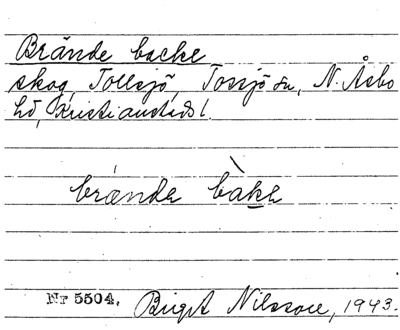 Brände backe
skog, Tollsjö, Tossjö sn, N. Åsbo
hd, Kristianstads l.
brände bàke
Nr 5504. Birgit Nilsson, 1943.